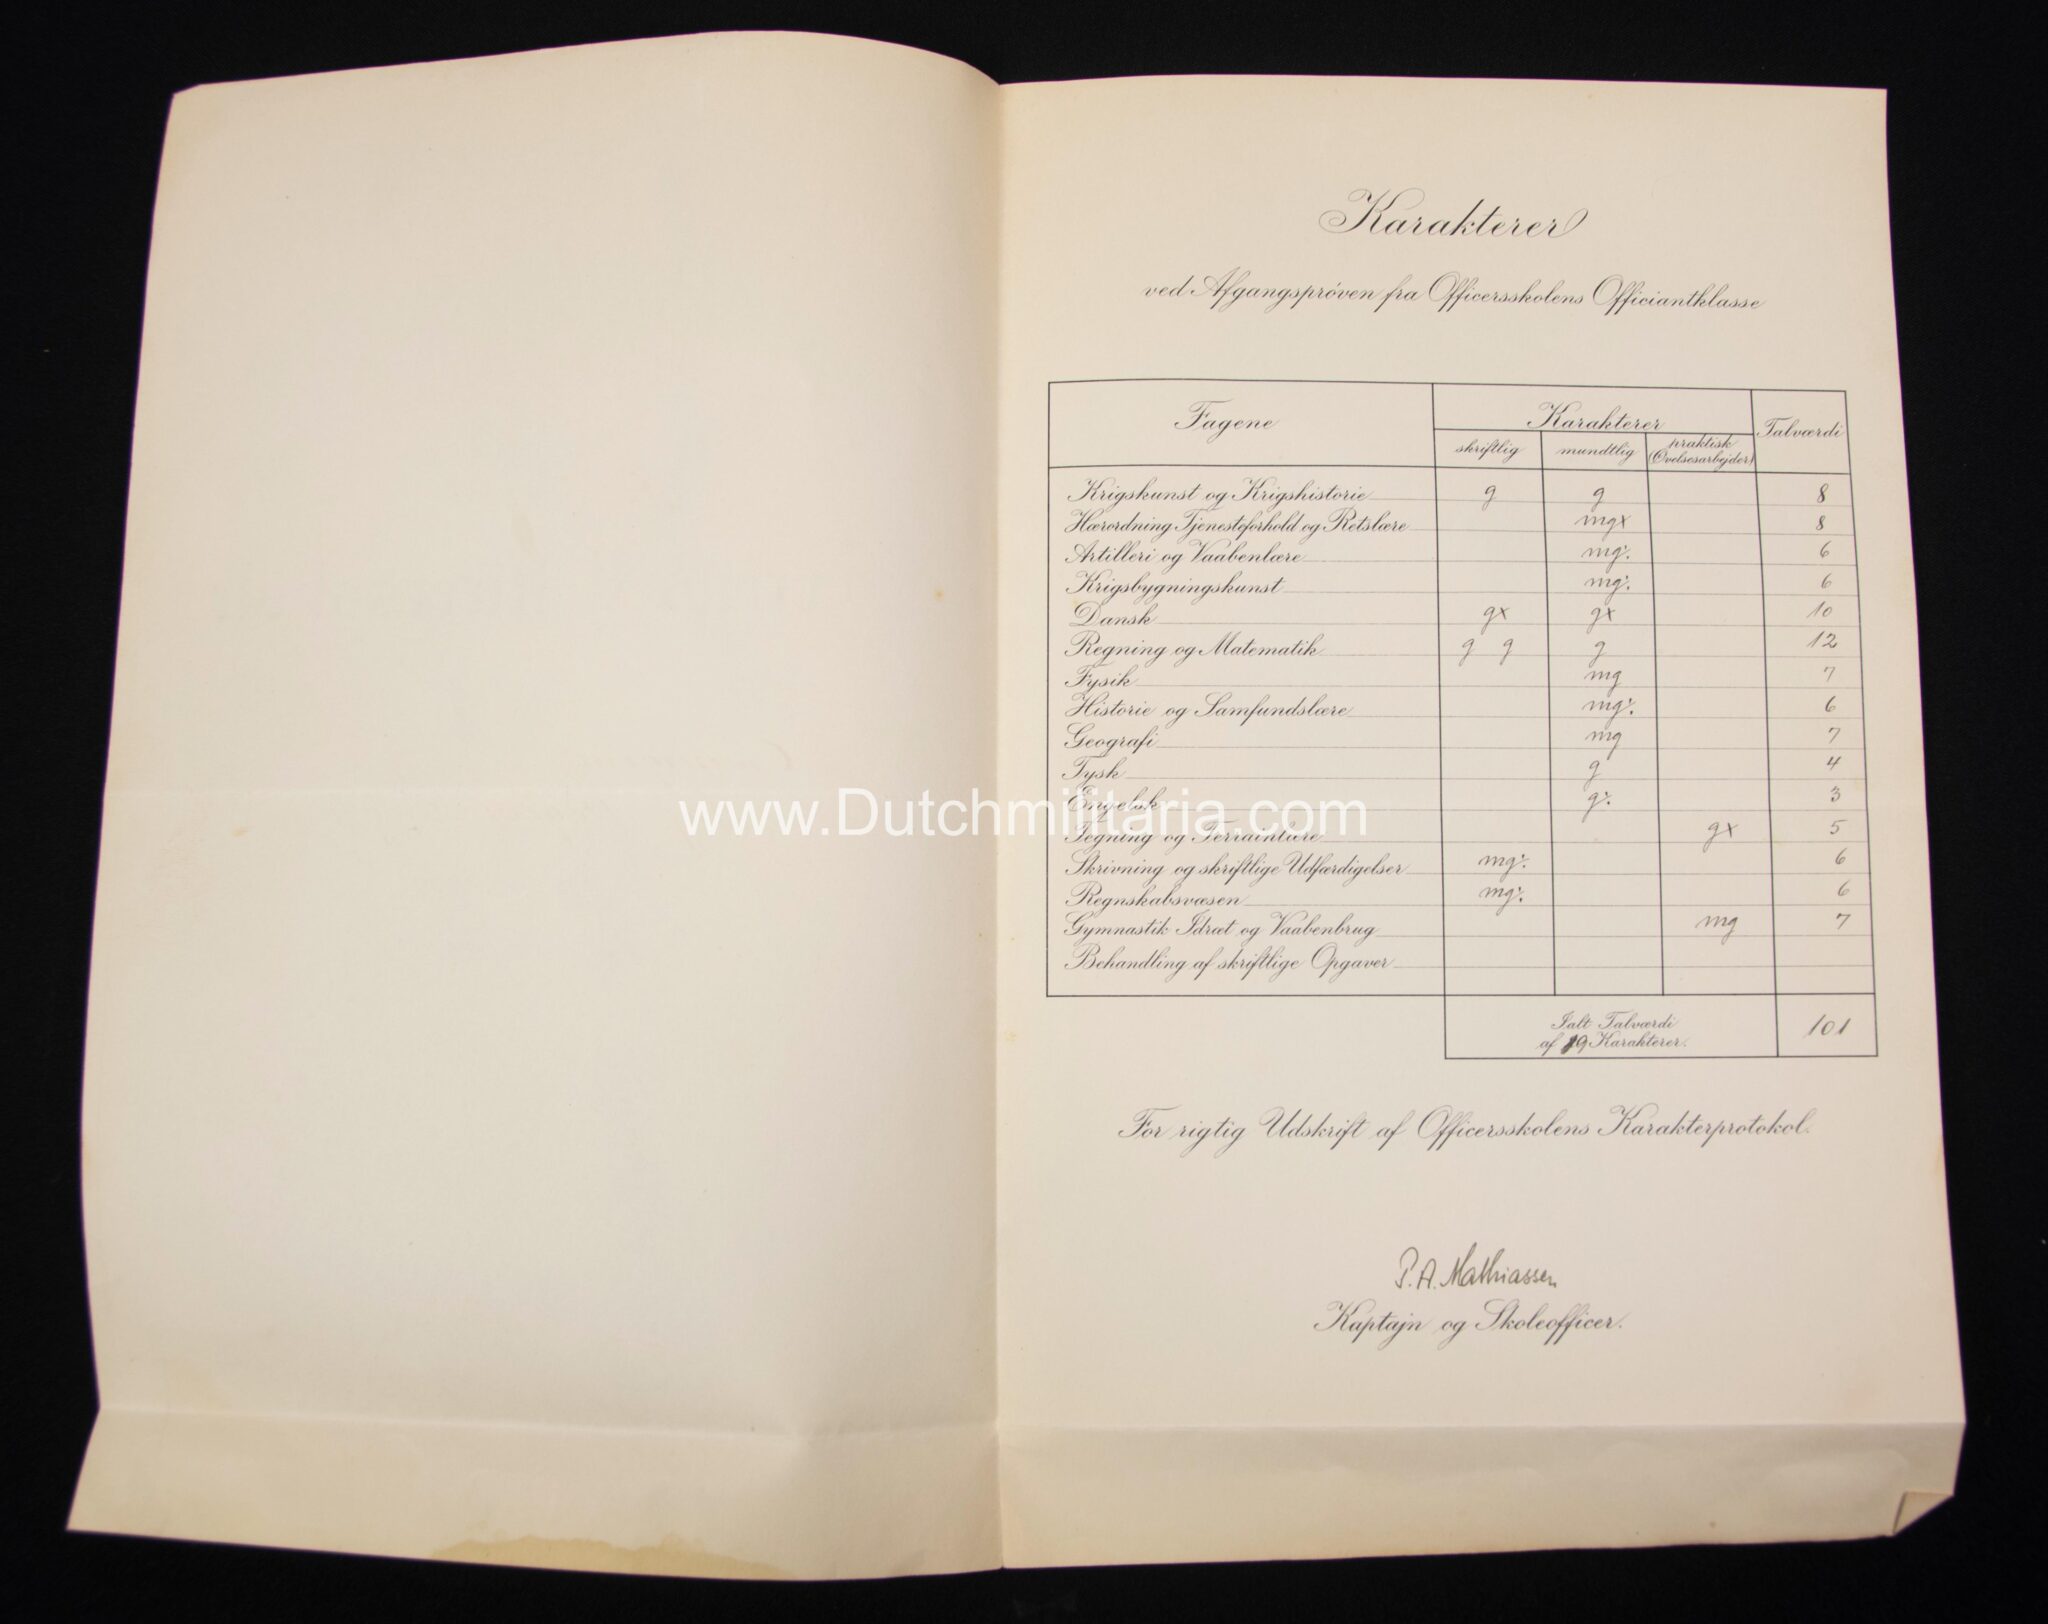 Karakterer
ved Afgangsprøven fra Officersskolens Officiantklasse
Fagene Karakterer Talværdi
skriftlig mundtlig praktisk (Øvelsesarbejder)
Krigskunst og Krigshistorie g g 8
Hærordning Tjenesteforhold og Retslære mgx 8
Artilleri og Vaabenlære mg÷ 6
Krigsbygningskunst mg÷ 6
Dansk gx gx 10
Regning og Matematik g g g 12
Fysik mg 7
Historie og Samfundslære mg÷ 6
Geografi mg 7
Tysk g 4
Engelsk g÷ 3
www.Dutchmilitaria.com
Tegning og Terrainlære gx 5
Skrivning og skriftlige Udfærdigelser mg÷ 6
Regnskabsvæsen mg÷ 6
Gymnastik Idræt og Vaabenbrug mg 7
Behandling af skriftlige Opgaver
Ialt Talværdi
af 19 Karakterer. 101
For rigtig Udskrift af Officersskolens Karakterprotokol.
P.A. Mathiassen
Kaptajn og Skoleofficer.